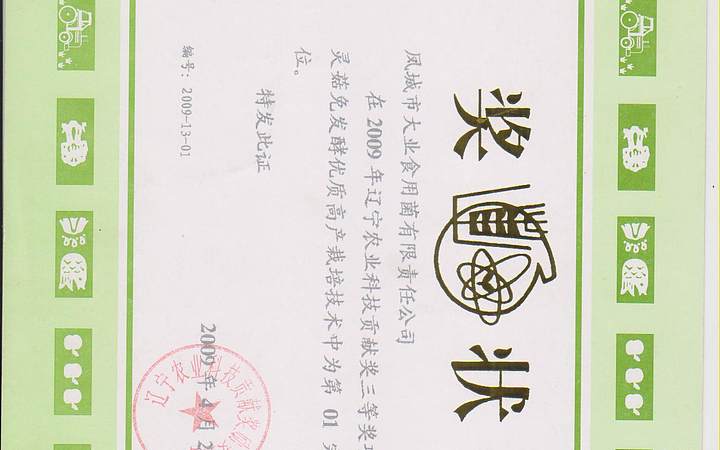 奖 状
凤城市大业食用菌有限责任公司
在 2009 年辽宁农业科技贡献奖三等奖
灵菇免发酵优质高产栽培技术中为第 01
位。
特发此证
2009 年 月 2
编号：2009-13-01
辽宁农业科技贡献奖